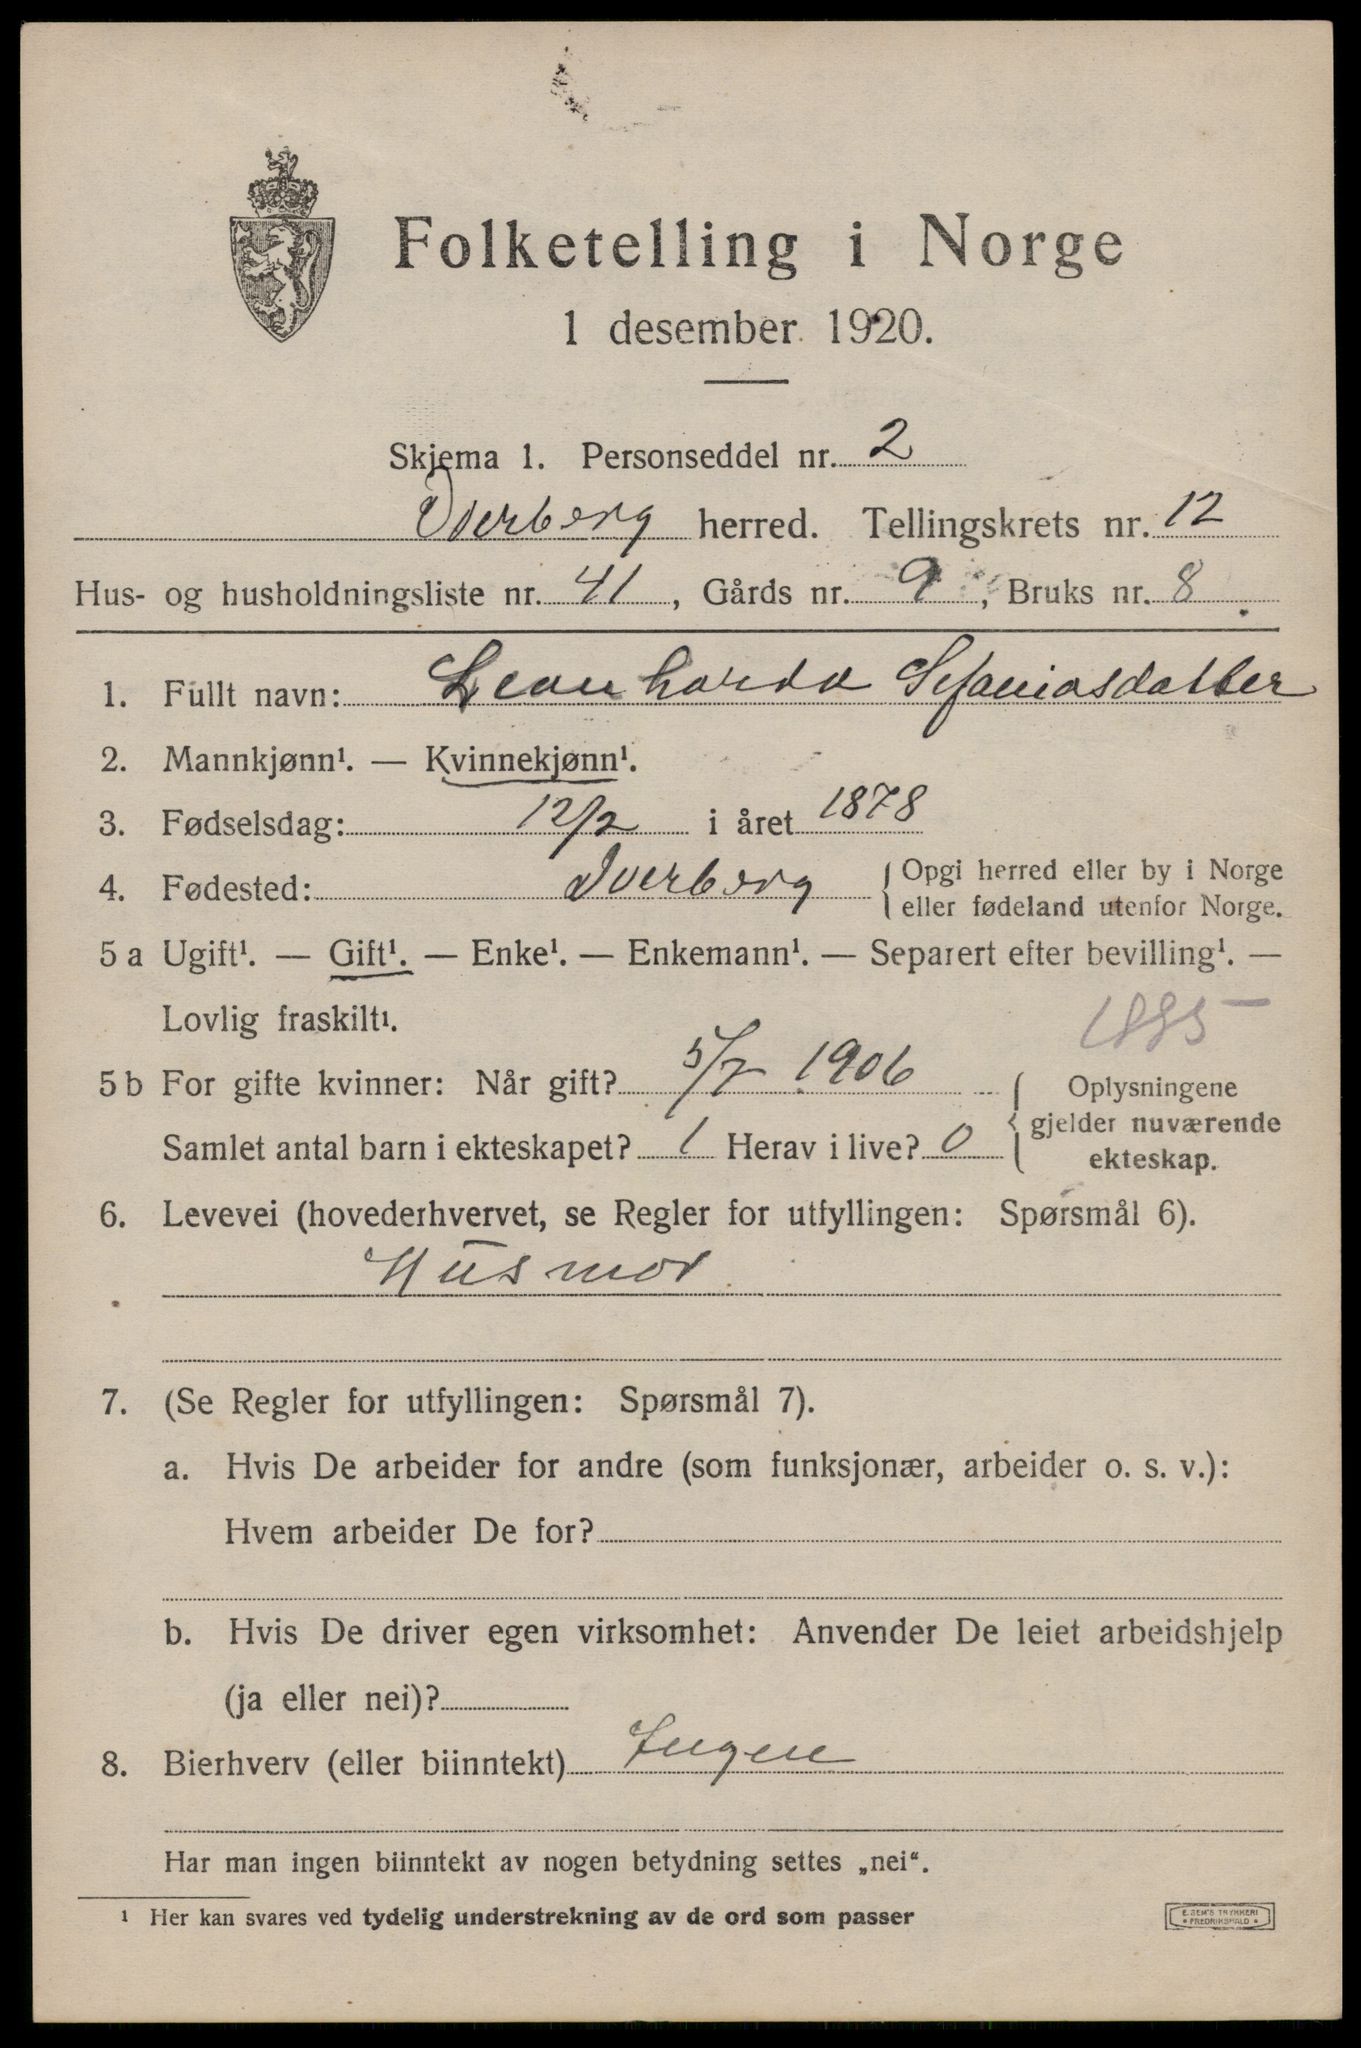 Folketelling i Norge
1 desember 1920.
Skjema 1. Personseddel nr. 2
Dverberg herred. Tellingskrets nr. 12
Hus- og husholdningsliste nr. 41, Gårds nr. 9, Bruks nr. 8
1. Fullt navn: Leonharda Sefaniasdatter
2. Mannkjønn¹. — Kvinnekjønn¹.
3. Fødselsdag: 12/2 i året 1878
4. Fødested: Dverberg { Opgi herred eller by i Norge
eller fødeland utenfor Norge.
5 a Ugift¹. — Gift¹. — Enke¹. — Enkemann¹. — Separert efter bevilling¹. —
Lovlig fraskilt¹.
1885
5 b For gifte kvinner: Når gift? 5/7 1906 { Oplysningene
gjelder nuværende
ekteskap.
Samlet antal barn i ekteskapet? 1 Herav i live? 0
6. Levevei (hovederhvervet, se Regler for utfyllingen: Spørsmål 6).
Husmor
7. (Se Regler for utfyllingen: Spørsmål 7).
a. Hvis De arbeider for andre (som funksjonær, arbeider o. s. v.):
Hvem arbeider De for?
b. Hvis De driver egen virksomhet: Anvender De leiet arbeidshjelp
(ja eller nei)?
8. Bierhverv (eller biinntekt) Ingen
Har man ingen biinntekt av nogen betydning settes „nei“.
¹ Her kan svares ved tydelig understrekning av de ord som passer
E. SEM'S TRYKKERI
• FREDRIKSHALD •